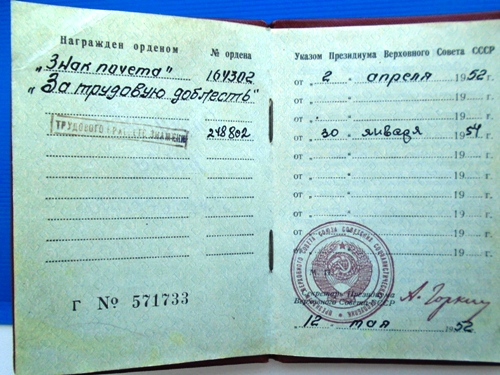 Награжден орденом
№ ордена
„Знак почета" 164302
„За трудовую доблесть"
ТРУДОВОГО КРАСНОГО ЗНАМЕНИ 248802
Г № 571733
Указом Президиума Верховного Совета СССР
от „ 2 " апреля 1952г.
от „ " 19 г.
от „ " 19 г.
от „ 30 " января 1954г.
от „ " 19 г.
от „ " 19 г.
от „ " 19 г.
от „ " 19 г.
от „ " 19 г.
Секретарь Президиума
Верховного Совета СССР
А. Горкин
„ 12 " мая 1952